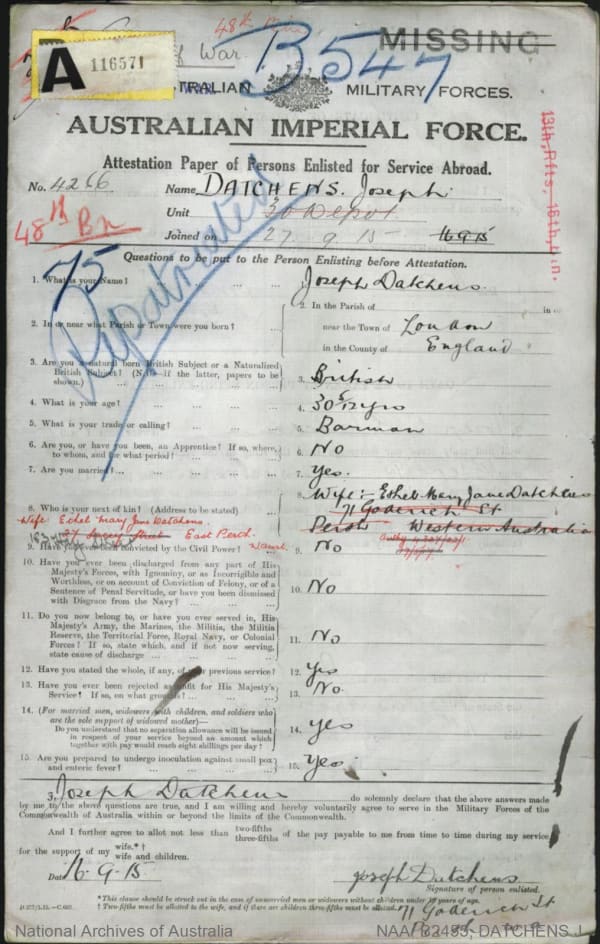 48th
MISSING
of War
B547
A 116571
AUSTRALIAN MILITARY FORCES.
AUSTRALIAN IMPERIAL FORCE.
Attestation Paper of Persons Enlisted for Service Abroad.
No. 4266 Name DATCHENS. Joseph.
48th Bn Unit 30 Depot
Joined on 27 9 15 16 9 15
13th, Rfts, 16th, Bn.
75
Repatriated
Questions to be put to the Person Enlisting before Attestation.
1. What is your Name? ... ... Joseph Datchens.
2. In or near what Parish or Town were you born? ... 2. In the Parish of in
near the Town of London
in the County of England
3. Are you a natural born British Subject or a Naturalized
British Subject? (N.B.—if the latter, papers to be
shown.) ... 3. British
4. What is your age? ... ... ... 4. 30 5/12 yrs
5. What is your trade or calling? ... ... 5. Barman
6. Are you, or have you been, an Apprentice? If so, where,
to whom, and for what period? ... ... 6. NO
7. Are you married?... ... ... ... 7. Yes.
8. Who is your next of kin? (Address to be stated) ... 8. Wife:- Ethel Mary Jane Datchens
71 Goderich St
Perth Western Australia
Wife Ethel Mary Jane Datchens.
37 Street East Perth.
9. Have you ever been convicted by the Civil Power? 9. No
10. Have you ever been discharged from any part of His
Majesty's Forces, with Ignominy, or as Incorrigible and
Worthless, or on account of Conviction of Felony, or of a
Sentence of Penal Servitude, or have you been dismissed
with Disgrace from the Navy? ... ... ... 10. NO
11. Do you now belong to, or have you ever served in, His
Majesty's Army, the Marines, the Militia, the Militia
Reserve, the Territorial Force, Royal Navy, or Colonial
Forces? If so, state which, and if not now serving,
state cause of discharge ... ... ... 11. No
12. Have you stated the whole, if any, of your previous service? 12. Yes
13. Have you ever been rejected as unfit for His Majesty's
Service? If so, on what grounds? ... ... 13. No.
14. (For married men, widowers with children, and soldiers who
are the sole support of widowed mother)—
Do you understand that no separation allowance will be issued
in respect of your service beyond an amount which
together with pay would reach eight shillings per day? 14. yes
15. Are you prepared to undergo inoculation against small pox
and enteric fever? ... ... ... 15. Yes.
I, Joseph Datchens do solemnly declare that the above answers made
by me to the above questions are true, and I am willing and hereby voluntarily agree to serve in the Military Forces of the
Commonwealth of Australia within or beyond the limits of the Commonwealth.
And I further agree to allot not less than two-fifths three-fifths of the pay payable to me from time to time during my service
for the support of my wife.*† wife and children.
Date 16.9.15 Joseph Datchens
Signature of person enlisted.
*This clause should be struck out in the case of unmarried men or widowers without children under 18 years of age.
† Two-fifths must be allotted to the wife, and if there are children three-fifths must be allotted.
71 Goderich St
National Archives of Australia NAA: B2455, DATCHENS J